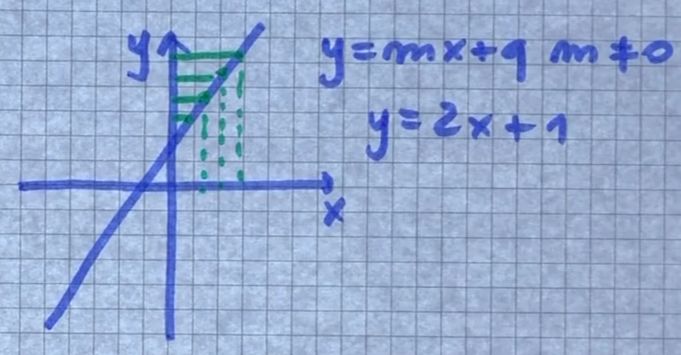 y
y=mx+q m≠0
y=2x+1
x